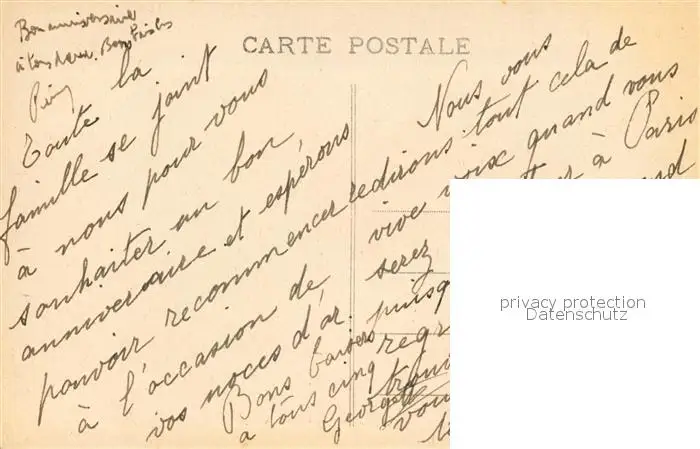 Bon anniversaire
à tous deux. Bons baisers
CARTE POSTALE
Toute la
famille se joint
à nous pour vous
souhaiter un bon
anniversaire et espérons
pouvoir recommencer
à l'occasion de
vos noces d'or.
Bons baisers
a tous cinq
Georges
Nous vous
redirons tout cela de
vive voix quand vous
serez à Paris
puisq
regr
trouv
vou
privacy protection
Datenschutz